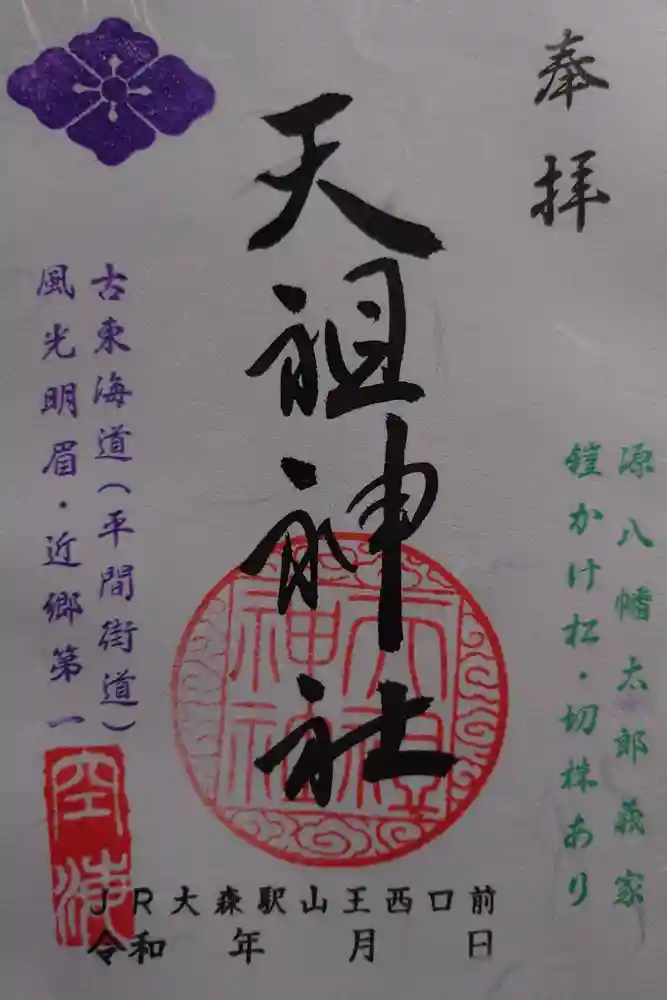 奉拝
源八幡太郎義家
鎧かけ松・切株あり
天祖神社
天祖神社
古東海道(平間街道)
風光明眉・近郷第一
JR大森駅山王西口前
令和　年　月　日